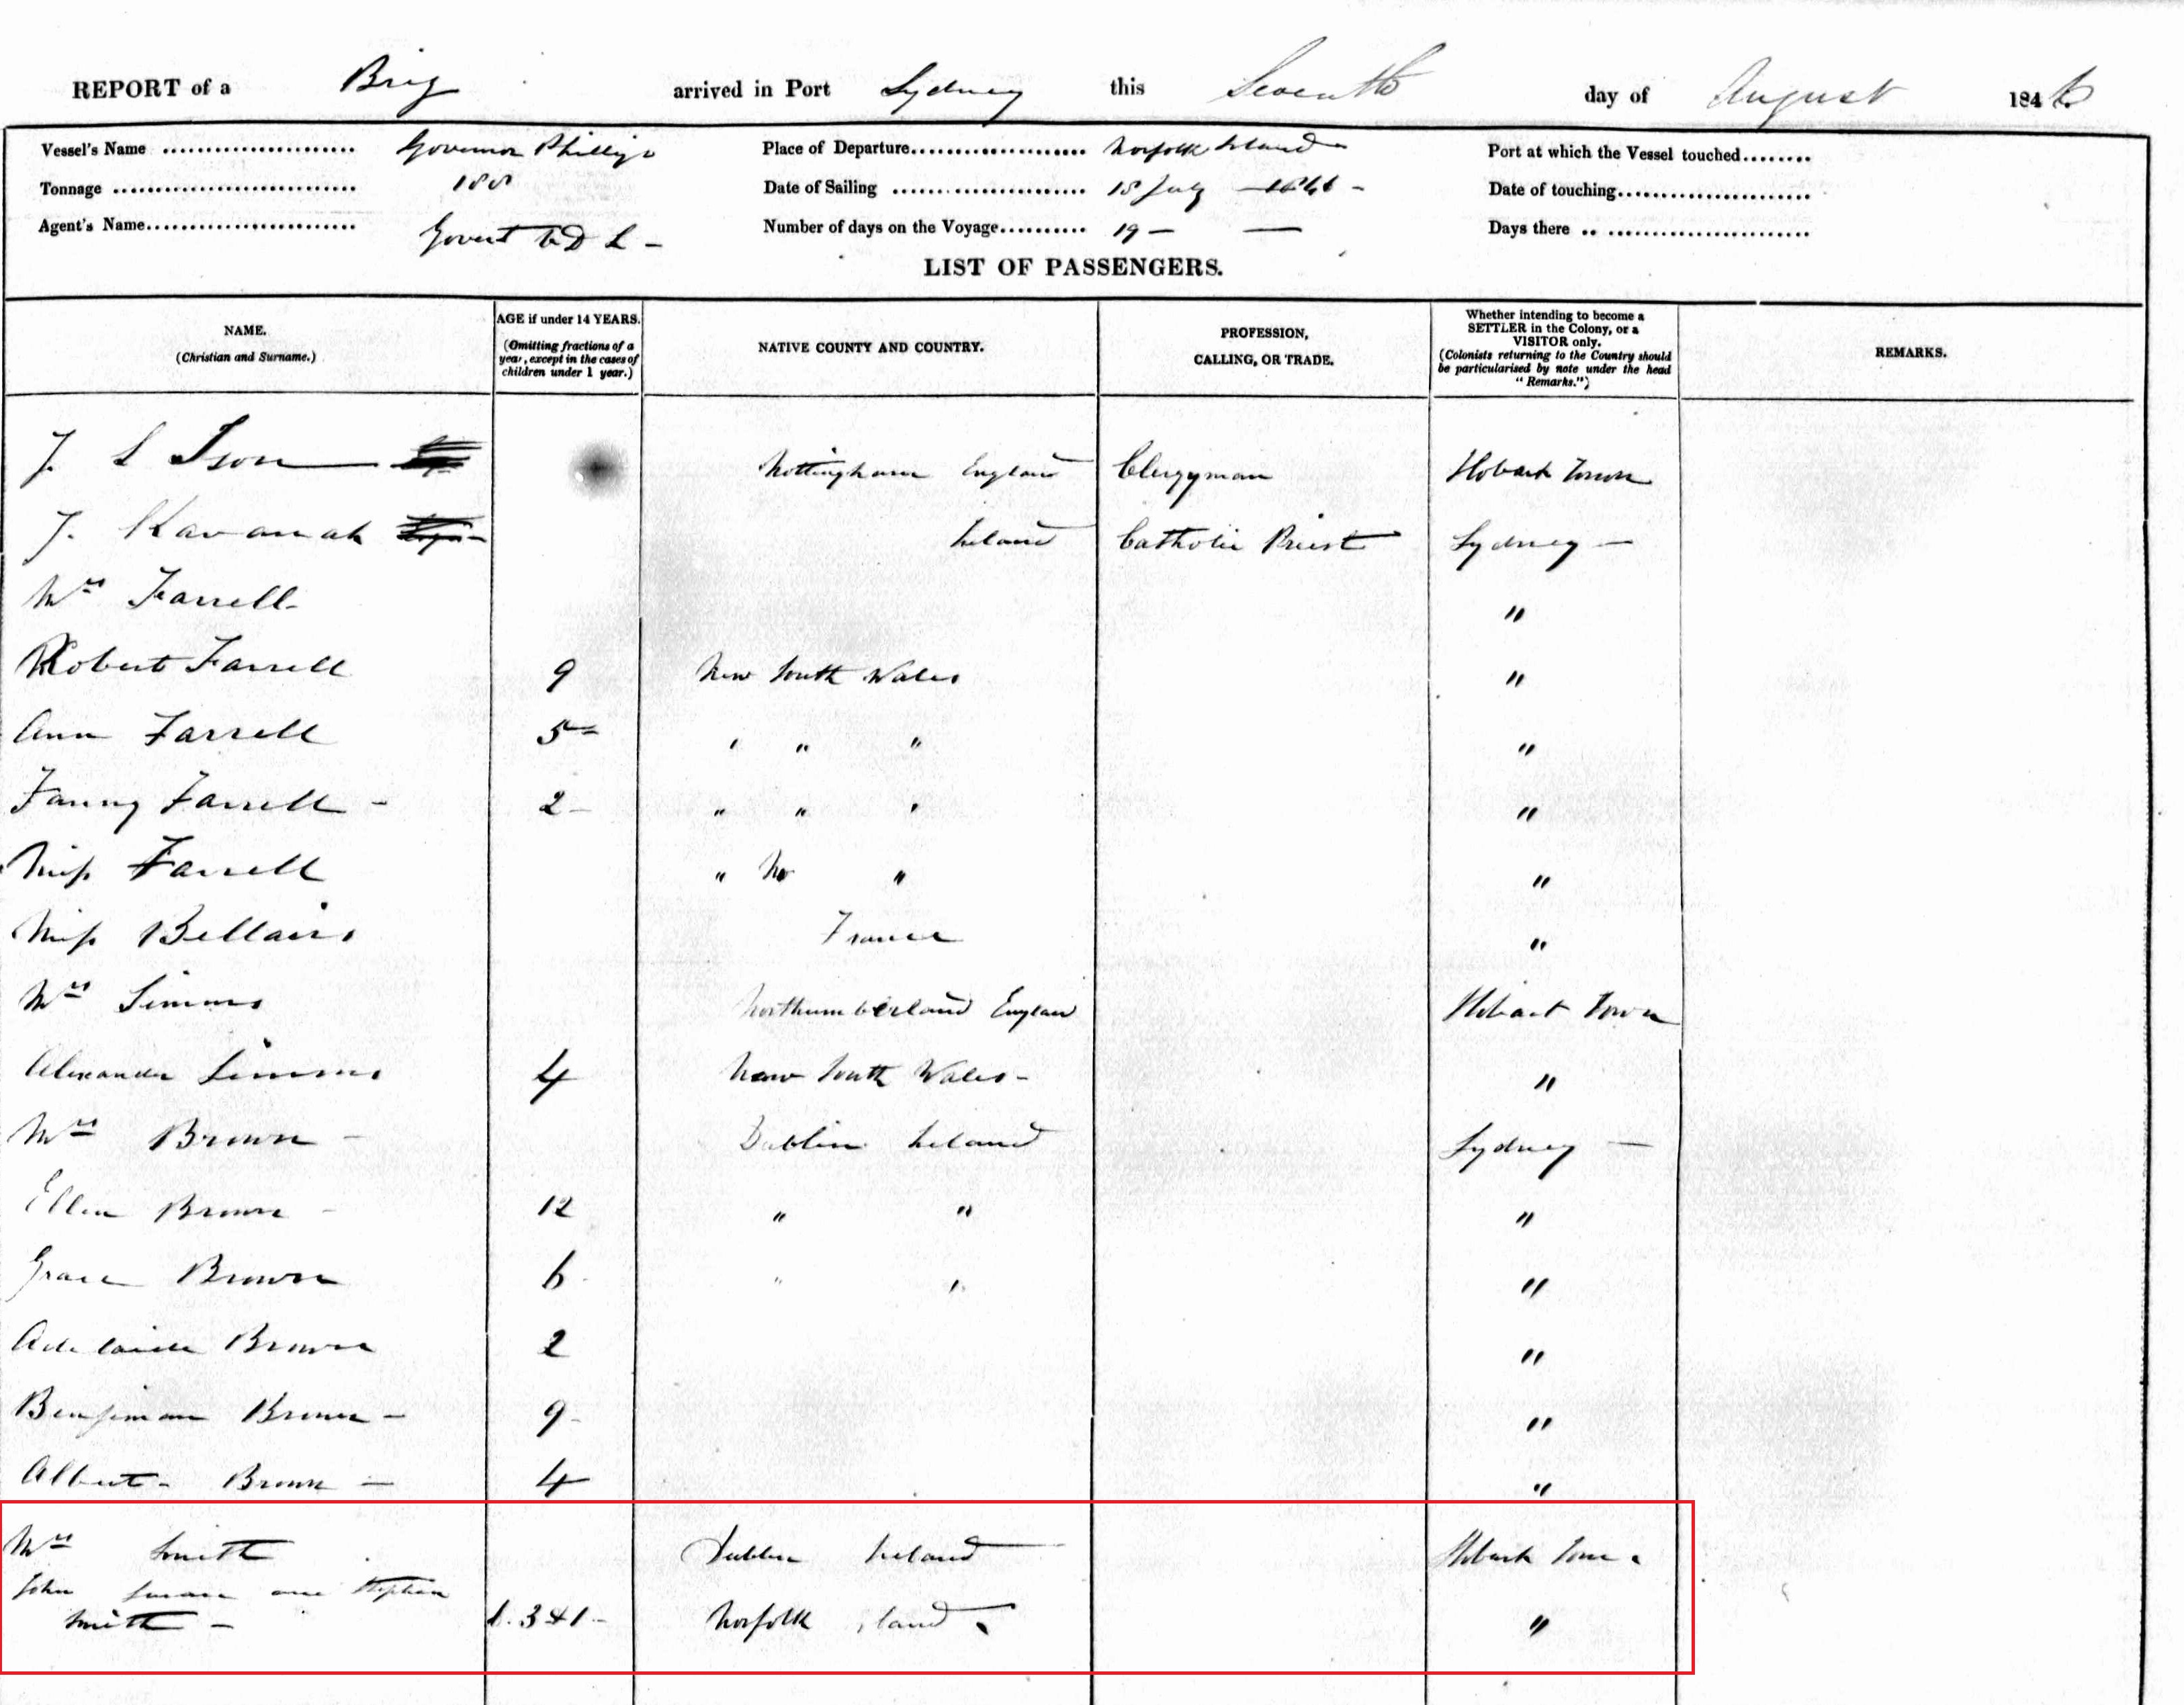 REPORT of a Brig arrived in Port Sydney this Seventh day of August 1846
Vessel's Name Governor Phillip Place of Departure Norfolk Island Port at which the Vessel touched
Tonnage 188 Date of Sailing 18 July 1846 Date of touching
Agent's Name Govert Number of days on the Voyage 19 Days there
LIST OF PASSENGERS.
NAME. (Christian and Surname.)
AGE if under 14 YEARS. (Omitting fractions of a year, except in the cases of children under 1 year.)
NATIVE COUNTY AND COUNTRY.
PROFESSION, CALLING, OR TRADE.
Whether intending to become a SETTLER in the Colony, or a VISITOR only. (Colonists returning to the Country should be particularised by note under the head "Remarks.")
REMARKS.
J. L Ison Nottingham England Clergyman Hobart Town
J. Kavanah Ireland Catholic Priest Sydney —
Mrs Farrell "
Robert Farrell 9 New South Wales "
Ann Farrell 5 " " " "
Fanny Farrell - 2 - " " " "
Miss Farrell " " "
Miss Bellairs France "
Mrs Simms Northumberland England Hobart Town
Alexander Simms 4 New South Wales - "
Mrs Brown - Dublin Ireland Sydney —
Ellen Brown - 12 " " "
Grace Brown 6 " " "
Adelaide Brown 2 "
Benjiman Brown - 9 - "
Albert - Brown — 4 "
Mrs Smith Dublin Ireland Hobart Town
John and Stephen
Smith - 3 & 1 - Norfolk Island "